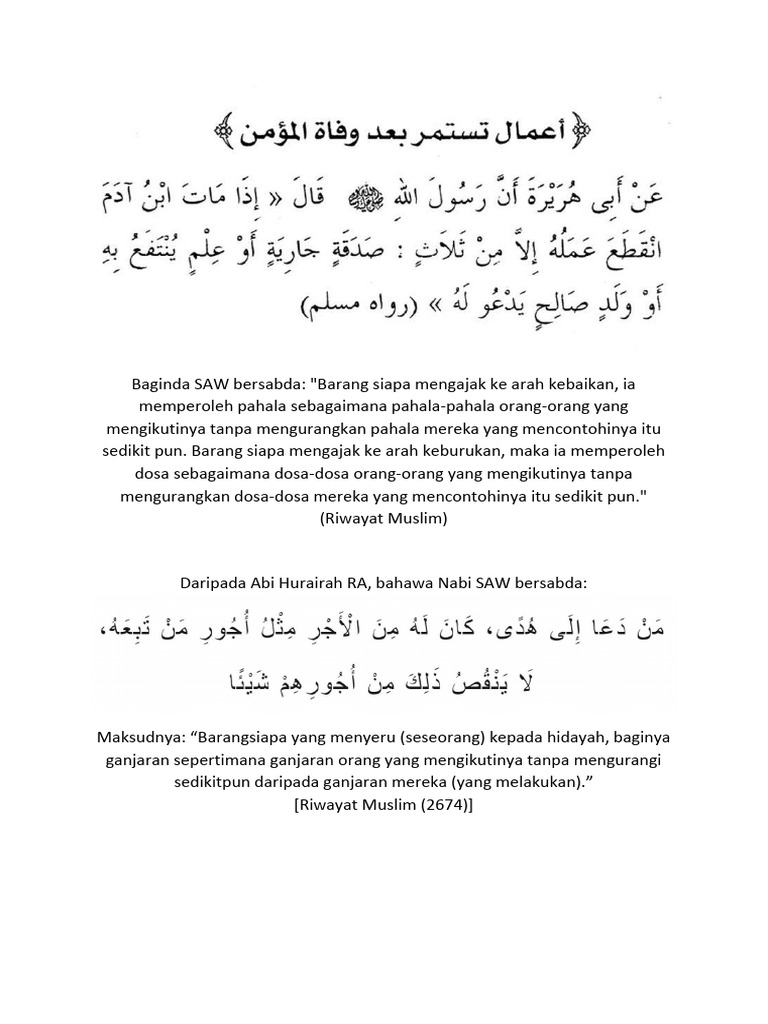 ﴿ أعمال تستمر بعد وفاة المؤمن ﴾
عَنْ أَبِى هُرَيْرَةَ أَنَّ رَسُولَ اللهِ ﷺ قَالَ « إِذَا مَاتَ ابْنُ آدَمَ
انْقَطَعَ عَمَلُهُ إِلاَّ مِنْ ثَلاَثٍ : صَدَقَةٍ جَارِيَةٍ أَوْ عِلْمٍ يُنْتَفَعُ بِهِ
أَوْ وَلَدٍ صَالِحٍ يَدْعُو لَهُ » (رواه مسلم)
Baginda SAW bersabda: "Barang siapa mengajak ke arah kebaikan, ia
memperoleh pahala sebagaimana pahala-pahala orang-orang yang
mengikutinya tanpa mengurangkan pahala mereka yang mencontohinya itu
sedikit pun. Barang siapa mengajak ke arah keburukan, maka ia memperoleh
dosa sebagaimana dosa-dosa orang-orang yang mengikutinya tanpa
mengurangkan dosa-dosa mereka yang mencontohinya itu sedikit pun."
(Riwayat Muslim)
Daripada Abi Hurairah RA, bahawa Nabi SAW bersabda:
مَنْ دَعَا إِلَى هُدًى، كَانَ لَهُ مِنَ الْأَجْرِ مِثْلُ أُجُورِ مَنْ تَبِعَهُ،
لَا يَنْقُصُ ذَلِكَ مِنْ أُجُورِهِمْ شَيْئًا
Maksudnya: “Barangsiapa yang menyeru (seseorang) kepada hidayah, baginya
ganjaran sepertimana ganjaran orang yang mengikutinya tanpa mengurangi
sedikitpun daripada ganjaran mereka (yang melakukan).”
[Riwayat Muslim (2674)]